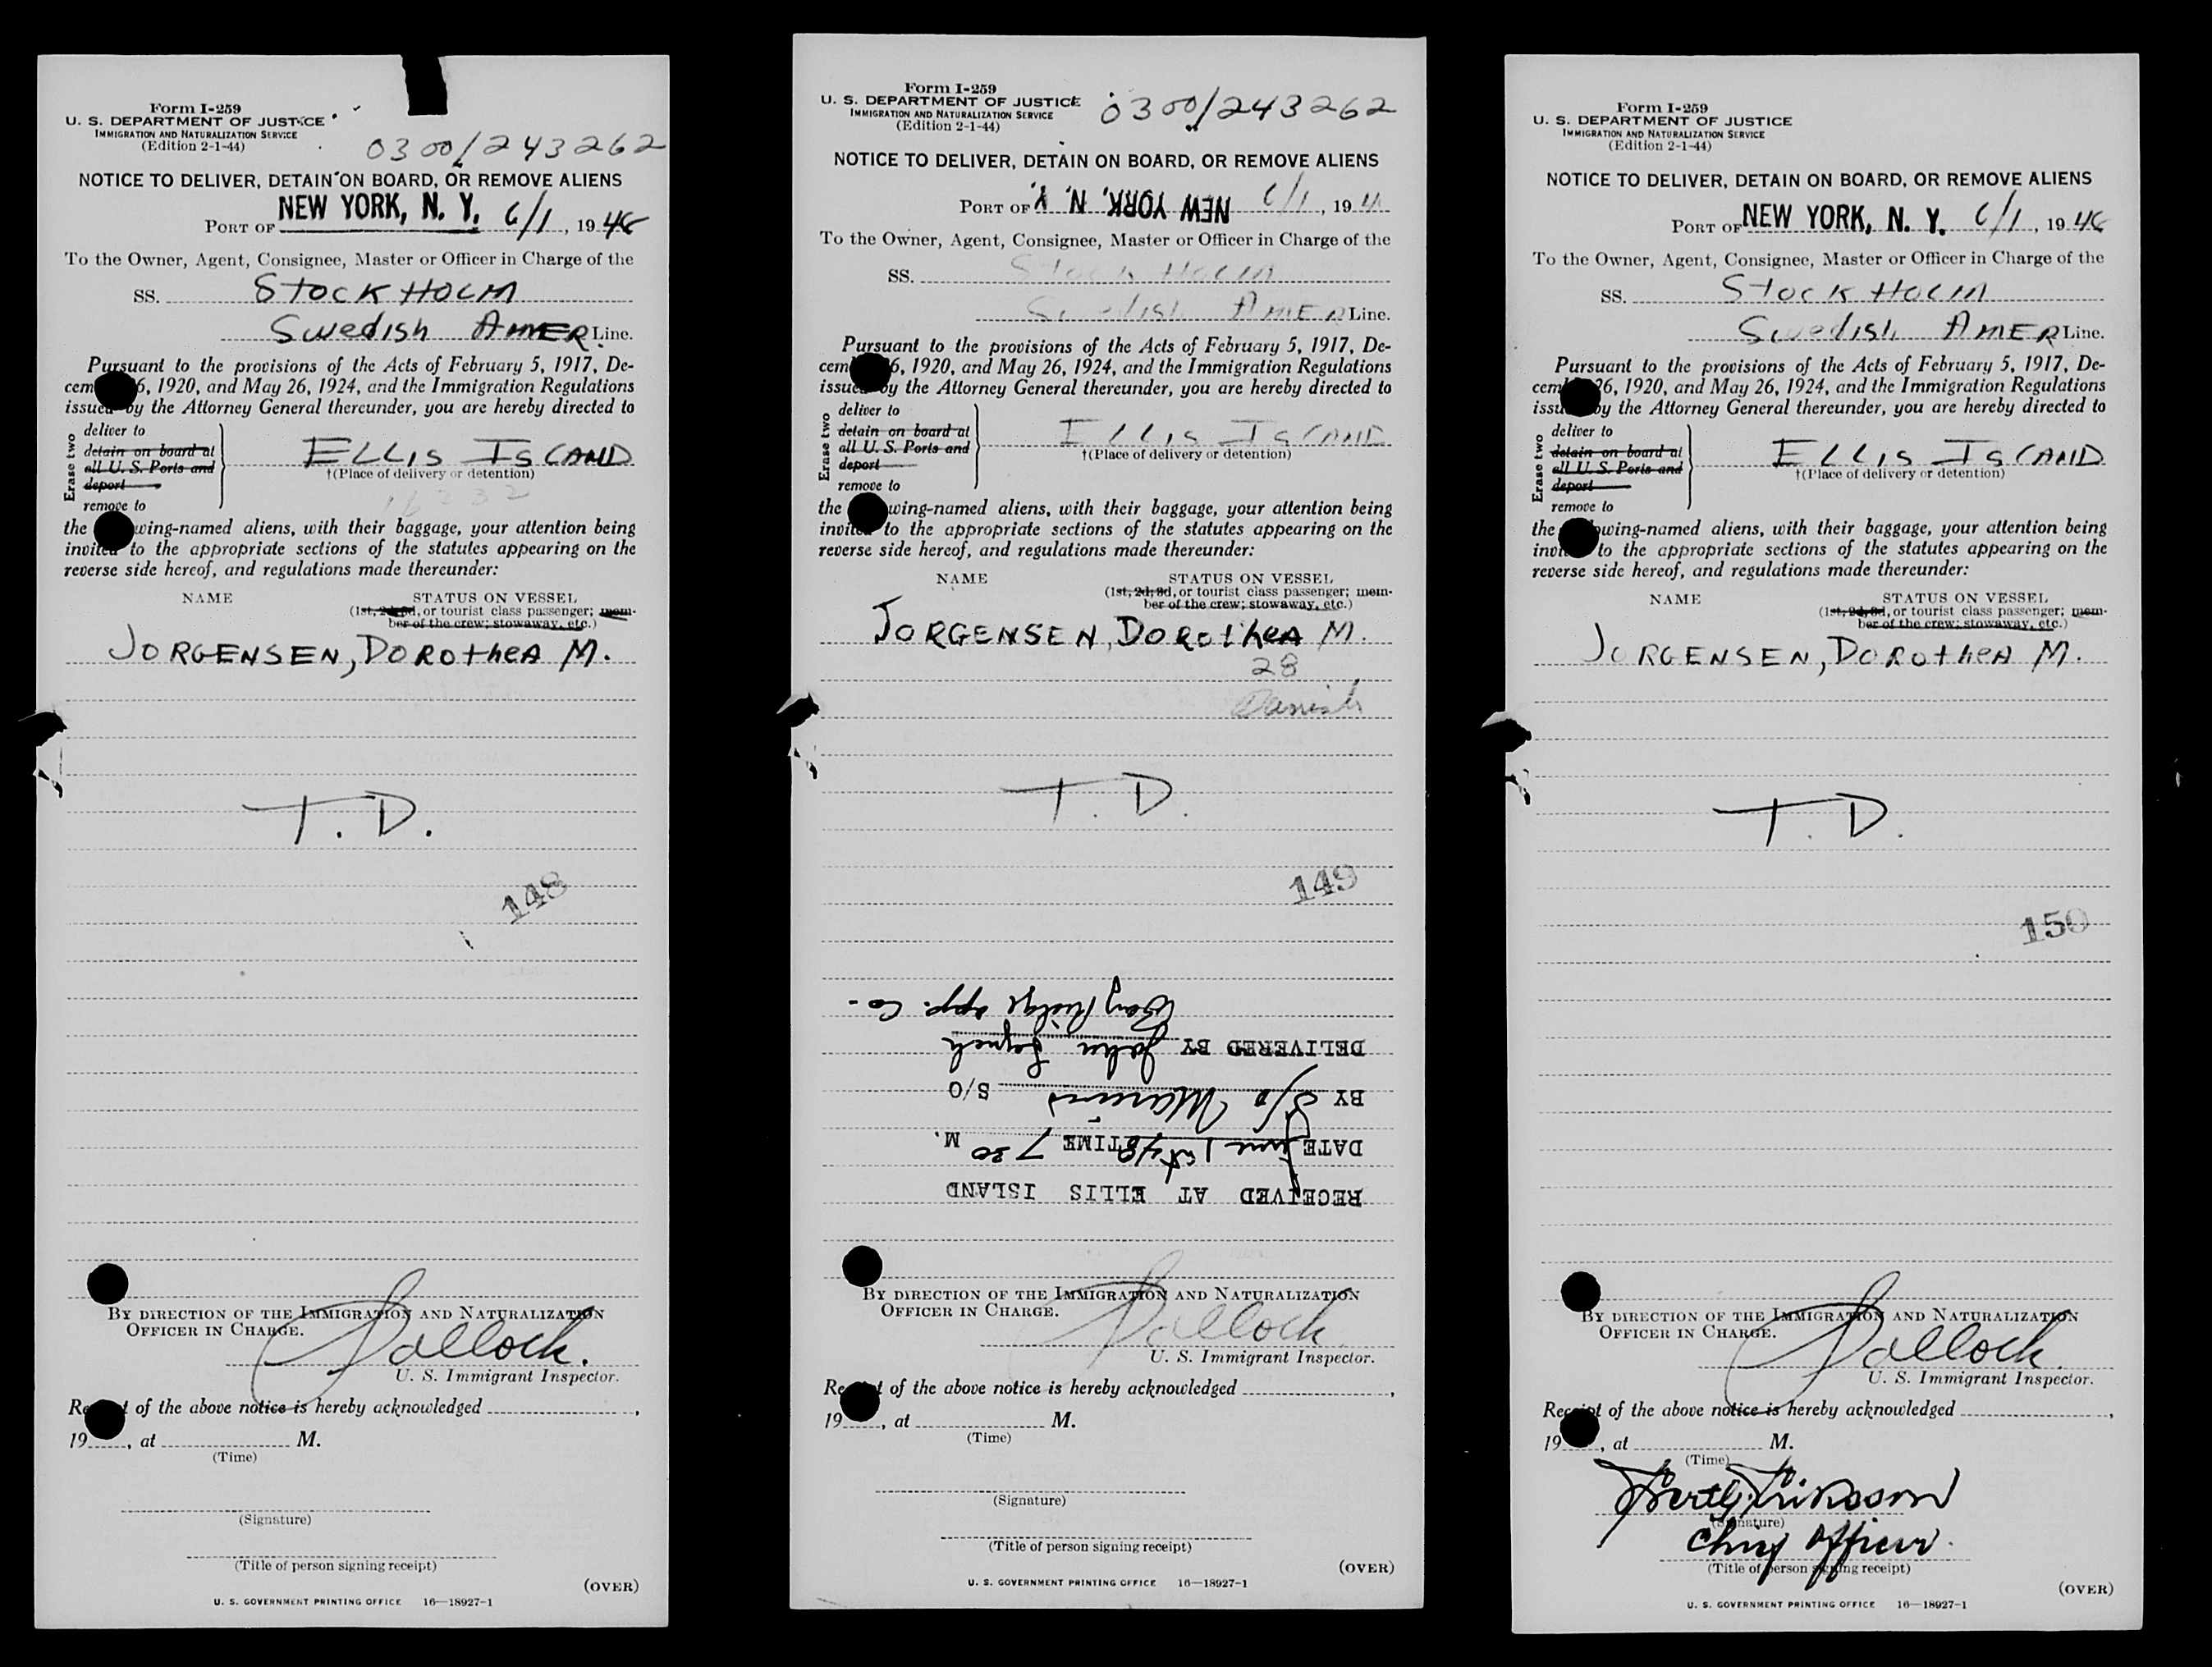 Form I-259
U. S. DEPARTMENT OF JUSTICE
IMMIGRATION AND NATURALIZATION SERVICE
(Edition 2-1-44)
0300/243262
NOTICE TO DELIVER, DETAIN ON BOARD, OR REMOVE ALIENS
PORT OF NEW YORK, N. Y. 6/1, 1948
To the Owner, Agent, Consignee, Master or Officer in Charge of the
SS. STOCKHOLM
Swedish AMER Line.
Pursuant to the provisions of the Acts of February 5, 1917, De-
cem 6, 1920, and May 26, 1924, and the Immigration Regulations
issued by the Attorney General thereunder, you are hereby directed to
Erase two
deliver to
detain on board at
all U. S. Ports and
deport
remove to
ELLIS ISLAND
†(Place of delivery or detention)
16332
the wing-named aliens, with their baggage, your attention being
invited to the appropriate sections of the statutes appearing on the
reverse side hereof, and regulations made thereunder:
NAME STATUS ON VESSEL
(1st, 2d, 3d, or tourist class passenger; mem-
ber of the crew; stowaway, etc.)
JORGENSEN, DOROTHEA M.
T. D.
148
BY DIRECTION OF THE IMMIGRATION AND NATURALIZATION
OFFICER IN CHARGE.
Pollock.
U. S. Immigrant Inspector.
Receipt of the above notice is hereby acknowledged ,
19 , at M.
(Time)
(Signature)
(Title of person signing receipt)
(OVER)
U. S. GOVERNMENT PRINTING OFFICE 16—18927-1
Form I-259
U. S. DEPARTMENT OF JUSTICE
IMMIGRATION AND NATURALIZATION SERVICE
(Edition 2-1-44)
0300/243262
NOTICE TO DELIVER, DETAIN ON BOARD, OR REMOVE ALIENS
PORT OF NEW YORK, N. Y. 6/1, 194
To the Owner, Agent, Consignee, Master or Officer in Charge of the
SS. STOCKHOLM
Swedish AMER Line.
Pursuant to the provisions of the Acts of February 5, 1917, De-
cem 6, 1920, and May 26, 1924, and the Immigration Regulations
issued by the Attorney General thereunder, you are hereby directed to
Erase two
deliver to
detain on board at
all U. S. Ports and
deport
remove to
ELLIS ISLAND
†(Place of delivery or detention)
the wing-named aliens, with their baggage, your attention being
invited to the appropriate sections of the statutes appearing on the
reverse side hereof, and regulations made thereunder:
NAME STATUS ON VESSEL
(1st, 2d, 3d, or tourist class passenger; mem-
ber of the crew; stowaway, etc.)
JORGENSEN, DOROTHEA M.
28
Danish
T. D.
149
RECEIVED AT ELLIS ISLAND
DATE June 1st 48 TIME 7 30 M.
BY S/O S/O
DELIVERED BY John Lynch
Bay Ridge opp. Co.
BY DIRECTION OF THE IMMIGRATION AND NATURALIZATION
OFFICER IN CHARGE.
Pollock
U. S. Immigrant Inspector.
Receipt of the above notice is hereby acknowledged ,
19 , at M.
(Time)
(Signature)
(Title of person signing receipt)
(OVER)
U. S. GOVERNMENT PRINTING OFFICE 16—18927-1
Form I-259
U. S. DEPARTMENT OF JUSTICE
IMMIGRATION AND NATURALIZATION SERVICE
(Edition 2-1-44)
NOTICE TO DELIVER, DETAIN ON BOARD, OR REMOVE ALIENS
PORT OF NEW YORK, N. Y. 6/1, 1948
To the Owner, Agent, Consignee, Master or Officer in Charge of the
SS. STOCKHOLM
Swedish AMER Line.
Pursuant to the provisions of the Acts of February 5, 1917, De-
cem 26, 1920, and May 26, 1924, and the Immigration Regulations
issued by the Attorney General thereunder, you are hereby directed to
Erase two
deliver to
detain on board at
all U. S. Ports and
deport
remove to
ELLIS ISLAND
†(Place of delivery or detention)
the owing-named aliens, with their baggage, your attention being
invited to the appropriate sections of the statutes appearing on the
reverse side hereof, and regulations made thereunder:
NAME STATUS ON VESSEL
(1st, 2d, 3d, or tourist class passenger; mem-
ber of the crew; stowaway, etc.)
JORGENSEN, DOROTHEA M.
T. D.
150
BY DIRECTION OF THE IMMIGRATION AND NATURALIZATION
OFFICER IN CHARGE.
Pollock.
U. S. Immigrant Inspector.
Receipt of the above notice is hereby acknowledged ,
19 , at M.
(Time)
(Signature)
Chief Officer.
(Title of person signing receipt)
(OVER)
U. S. GOVERNMENT PRINTING OFFICE 16—18927-1